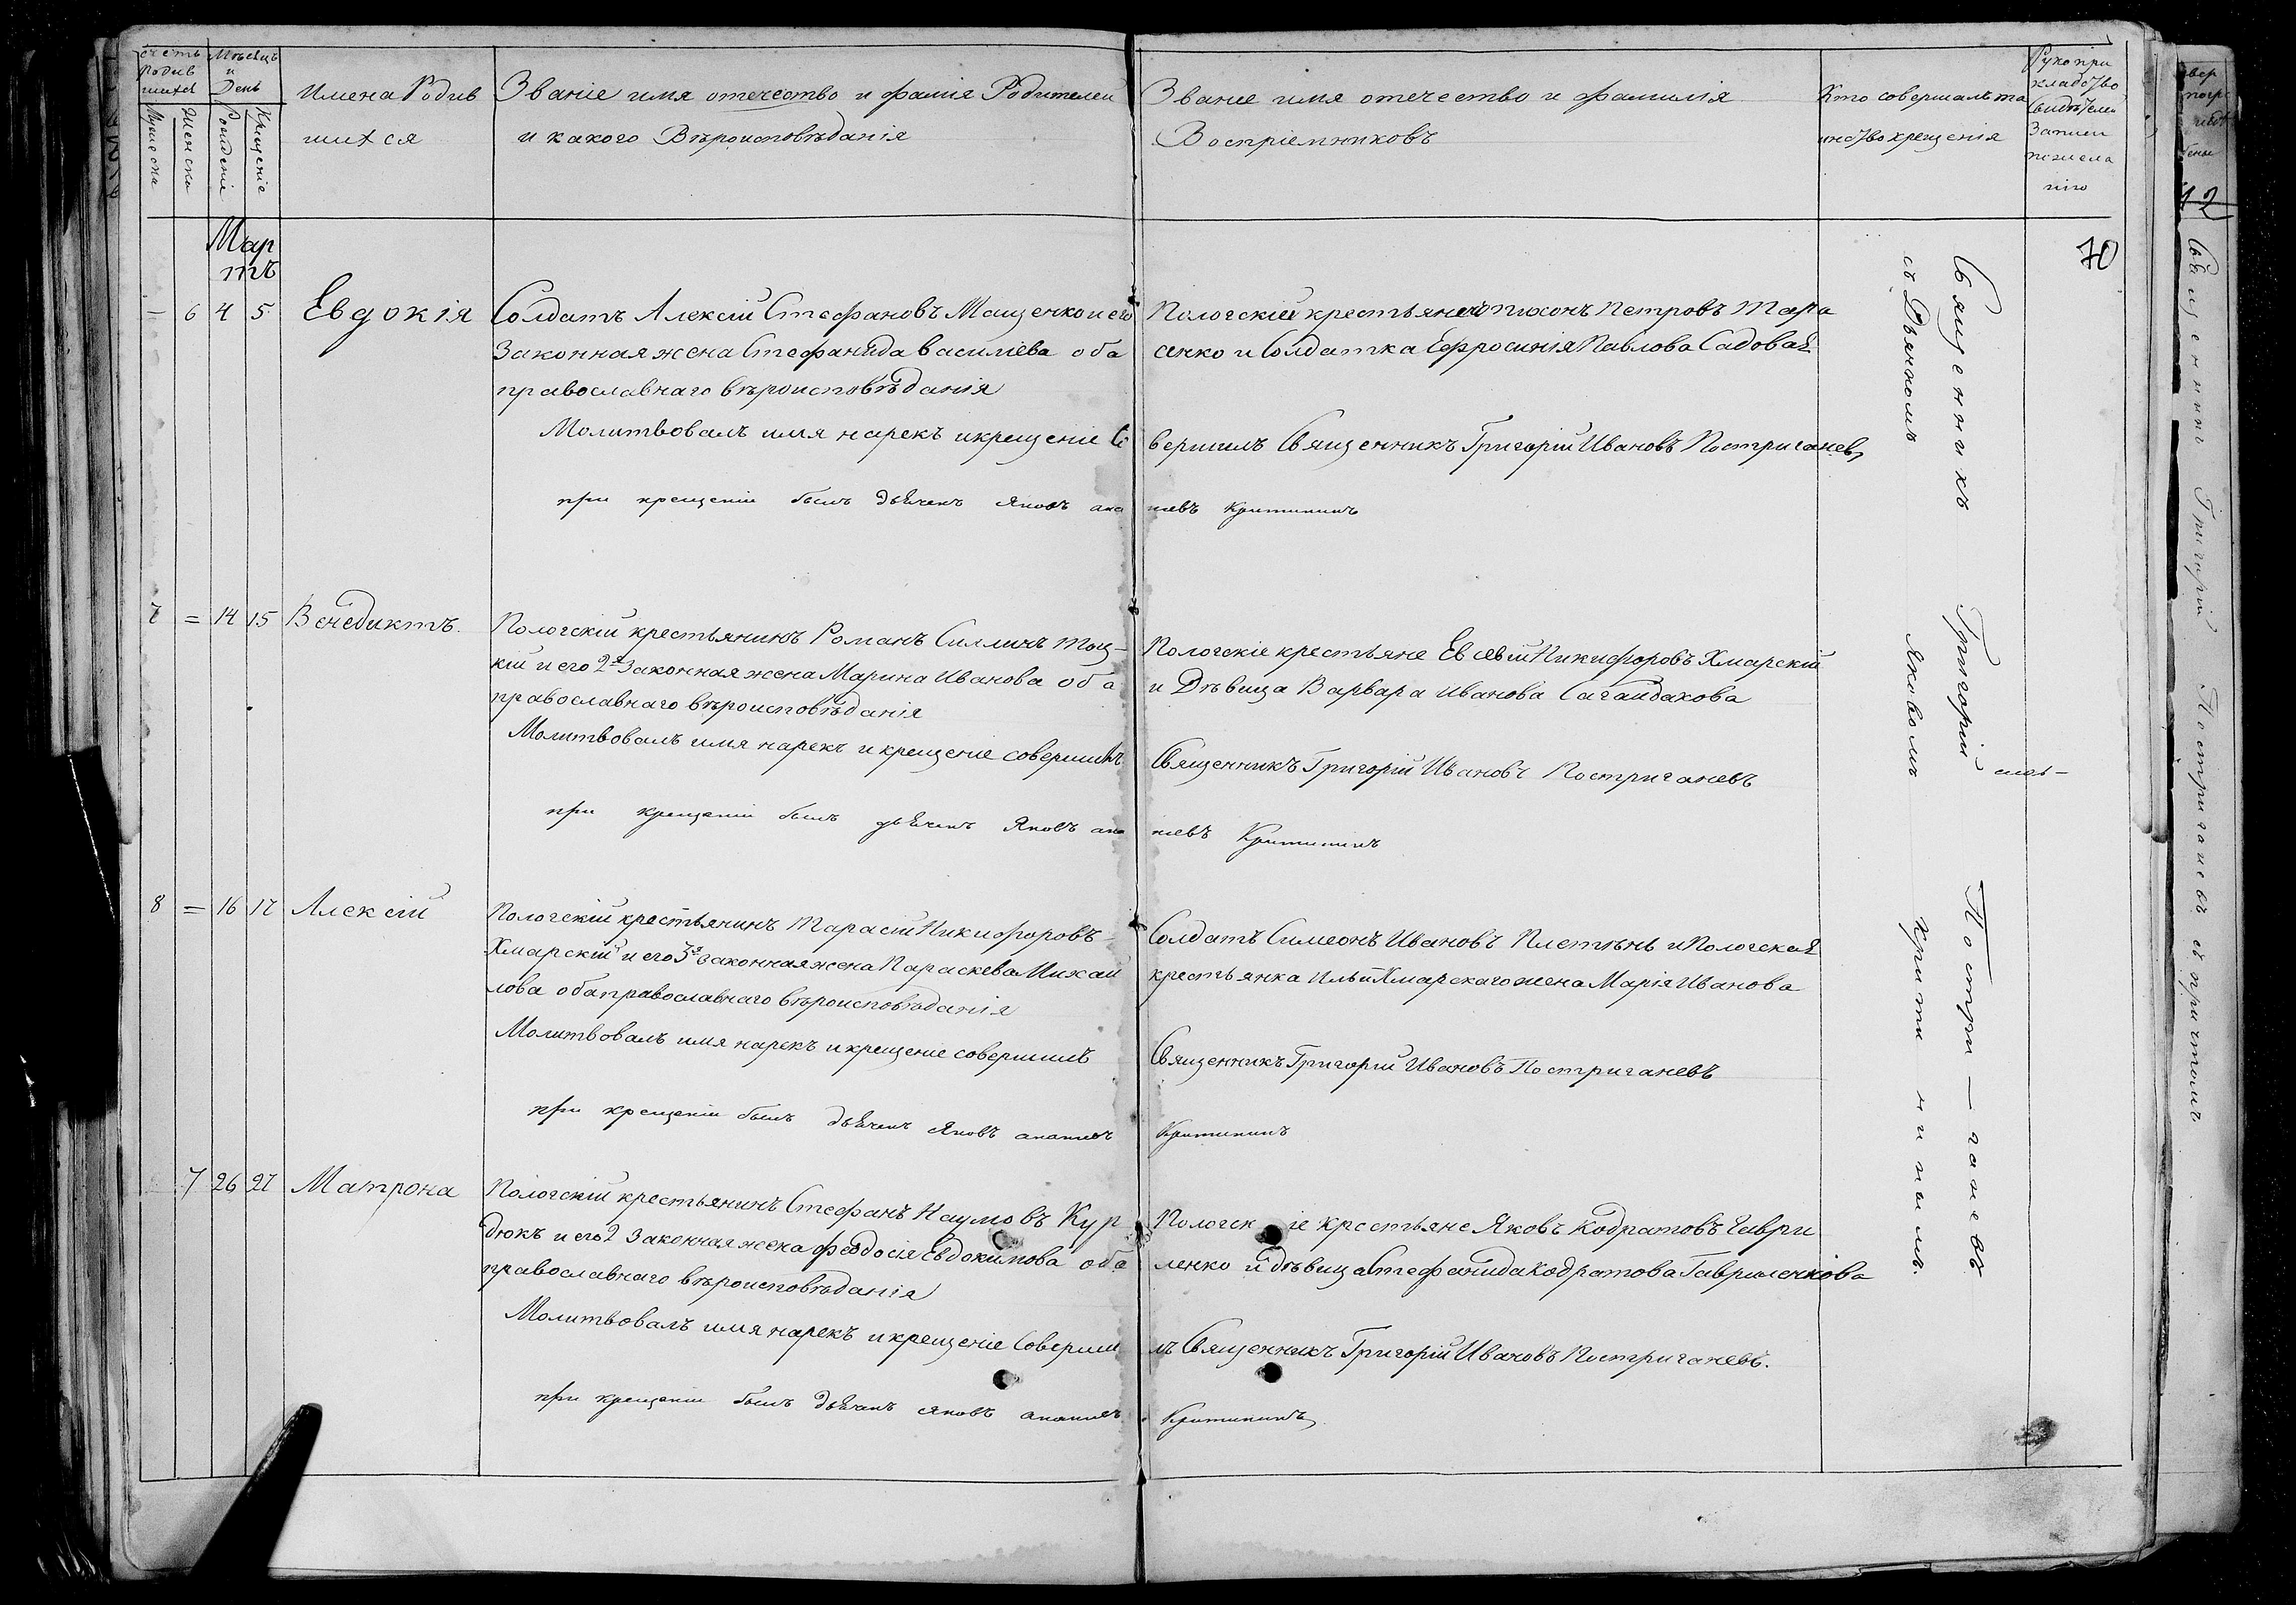 счетъ
родив
шихся
Мѣсяцъ
и
День
Мужеска
Женска
Рожденіе
Крещеніе
Имена Родив
шихся
Званіе имя отечество и фамія Родителей
и какого Вѣроисповѣданія
Званіе имя отечество и фамилія
Воспріемниковъ
Кто совершалъ та
инство крещенія
Рукопри
кладство
Свидѣтелей
Записи
по жела
нію
70
Мар
тъ
– 6 4 5 Евдокія
Солдатъ Алексій Стефановъ Мащенко и его
Законная жена Стефанида василіева оба
православнаго вѣроисповѣданія
Молитвовалъ имя нарекъ и крещеніе Со
при крещеніи былъ дьячекъ Яковъ ана
Пологскій крестьянинъ тихонъ Петровъ Тара
сенко и Солдатка Ефросинія Павлова Садовая
вершилъ Священникъ Григорій Ивановъ Постриганевъ
ніевъ Критининъ
7 = 14 15 Венедиктъ.
Пологскій крестьянинъ Романъ Силлинъ тоц-
кій и его 2я Законная жена Марина Иванова оба
православнаго вѣроисповѣданія
Молитвовалъ имя нарекъ и крещеніе совершилъ
при крещеніи былъ дьячекъ Яковъ ана
Пологскіе крестьяне Евсевій Никифоровъ Хмарскій
и Дѣвица Варвара Иванова Сагайдакова
Священникъ Григорій Ивановъ Постриганевъ
ніевъ Критининъ
8 = 16 17 Алексій
Пологскій крестьянинъ Тарасій Никифоровъ
Хмарскій и его 3я законная жена Параскева Михаи
лова оба православнаго вѣроисповѣданія
Молитвовалъ имя нарекъ и крещеніе совершилъ
при крещеніи былъ дьячекъ Яковъ ананіевъ
Солдатъ Симеонъ Ивановъ Плетѣнь и Пологская
крестьянка Ильи Хмарскаго жена Марія Иванова
Священникъ Григорій Ивановъ Постриганевъ
Критининъ
7 26 27 Матрона
Пологскій крестьянинъ Стефанъ Наумовъ Кур
дюкъ и его 2 Законная жена феодосія Евдокимова оба
православнаго вѣроисповѣданія
Молитвовалъ имя нарекъ и крещеніе Соверши
при крещеніи былъ дьячекъ Яковъ ананіевъ
Пологскіе крестьяне Яковъ Кодратовъ Гаври
ленко и дѣвица Стефанида Кодратова Гавриленкова
лъ Священникъ Григорій Ивановъ Постриганевъ.
Критининъ
Священникъ Григорій Постри-ганевъ
съ Дьячкомъ Яковомъ Критининымъ.
12
Священникъ Григорій Постриганевъ съ причтомъ